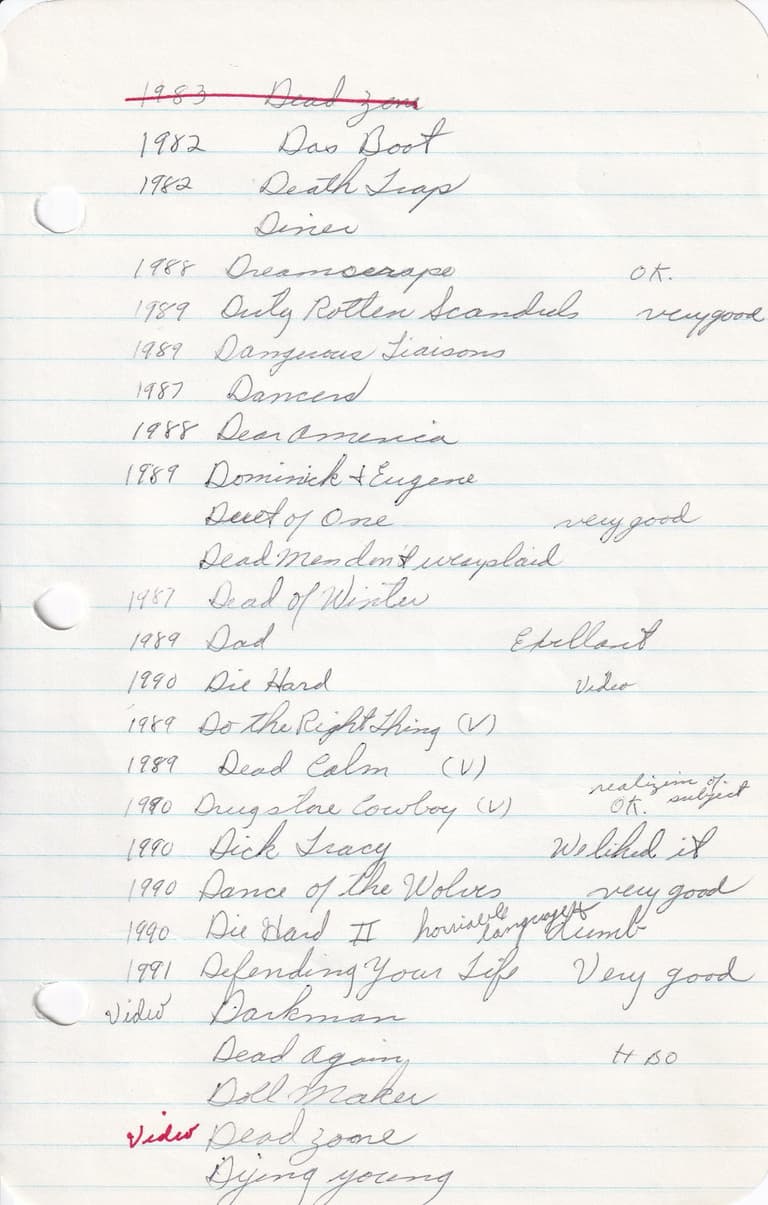 1983 Dead zone
1982 Das Boot
1982 Death Trap
Diner
1988 Dreamscrape OK.
1989 Dirty Rotten Scandruls very good
1989 Dangerous Liaisons
1987 Dancers
1988 Dear America
1989 Dominick & Eugene
Duet of One very good
Dead Men don't wear plaid
1987 Dead of Winter
1989 Dad Exellant
1990 Die Hard Video
1989 Do the Right Thing (V)
1989 Dead Calm (V)
realizim of subject
1990 Drugstore Cowboy (V) OK.
1990 Dick Tracy We liked it
1990 Dance of the Wolves very good
1990 Die Hard II horriable language dumb
1991 Defending Your Life Very good
Video Darkman
Dead Again HBO
Doll Maker
Video Dead zone
Dying young